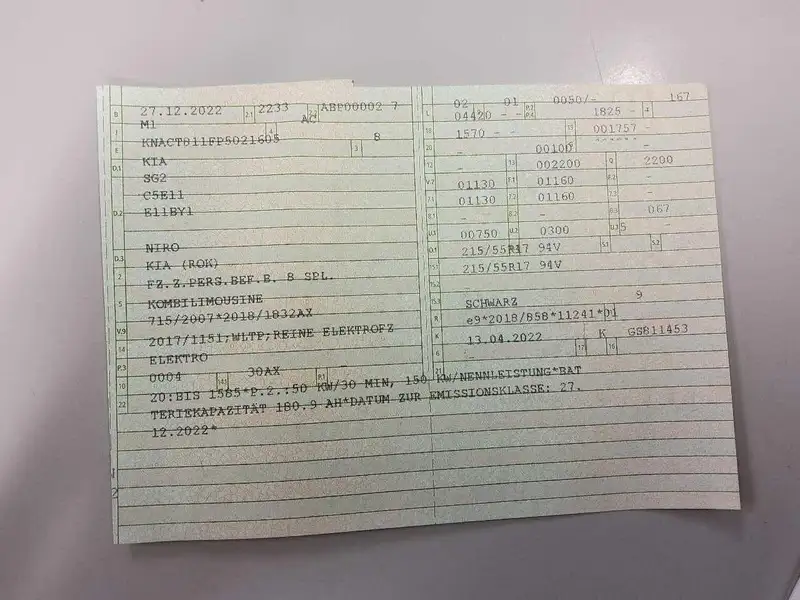 B 27.12.2022 2.1 2233 2.2 ABP00002 7
J M1 4 AC
E KNACT811FP5021605 3 8
D.1 KIA
SG2
D.2 C5E11
E11BY1
D.3 NIRO
2 KIA (ROK)
5 FZ.Z.PERS.BEF.B. 8 SPL.
KOMBILIMOUSINE
V.9 715/2007*2018/1832AX
14 2017/1151;WLTP;REINE ELEKTROFZ
P.3 ELEKTRO
10 0004 14.1 30AX P.1
L 02 01 P.2 P.4 0050/- 167
18 04420 - - 1825 - 4
20 1570 - - 001757 -
12 - 13 00100 Q -
V.7 - 002200 2200
7.1 01130 F.1 01160 8.2 -
8.1 01130 F.2 01160 -
U.1 - - 067
00750 U.2 0300 U.3 5
15.1 215/55R17 94V S.1 S.2
215/55R17 94V
15.3 -
R SCHWARZ 9
K e9*2018/858*11241*01
6 13.04.2022 17 K 16 GS811453
21
22 20:BIS 1585*P.2.:50 KW/30 MIN, 150 KW/NENNLEISTUNG*BAT
TERIEKAPAZITÄT 180.9 AH*DATUM ZUR EMISSIONSKLASSE: 27.
12.2022*